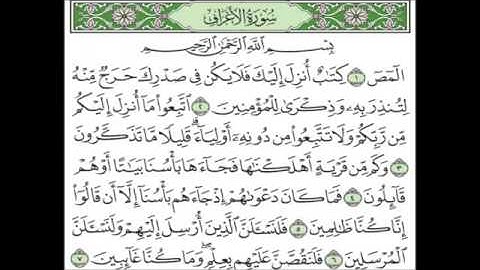 سُورَةُ الأَعْرَافِ
بِسْمِ ٱللَّهِ ٱلرَّحْمَٰنِ ٱلرَّحِيمِ
الٓمٓصٓ ١ كِتَٰبٌ أُنزِلَ إِلَيْكَ فَلَا يَكُن فِى صَدْرِكَ حَرَجٌ مِّنْهُ
لِتُنذِرَ بِهِۦ وَذِكْرَىٰ لِلْمُؤْمِنِينَ ٢ ٱتَّبِعُوا۟ مَآ أُنزِلَ إِلَيْكُم
مِّن رَّبِّكُمْ وَلَا تَتَّبِعُوا۟ مِن دُونِهِۦٓ أَوْلِيَآءَ ۗ قَلِيلًا مَّا تَذَكَّرُونَ
٣ وَكَم مِّن قَرْيَةٍ أَهْلَكْنَٰهَا فَجَآءَهَا بَأْسُنَا بَيَٰتًا أَوْ هُمْ
قَآئِلُونَ ٤ فَمَا كَانَ دَعْوَىٰهُمْ إِذْ جَآءَهُم بَأْسُنَآ إِلَّآ أَن قَالُوٓا۟
إِنَّا كُنَّا ظَٰلِمِينَ ٥ فَلَنَسْـَٔلَنَّ ٱلَّذِينَ أُرْسِلَ إِلَيْهِمْ وَلَنَسْـَٔلَنَّ
ٱلْمُرْسَلِينَ ٦ فَلَنَقُصَّنَّ عَلَيْهِم بِعِلْمٍ ۖ وَمَا كُنَّا غَآئِبِينَ ٧